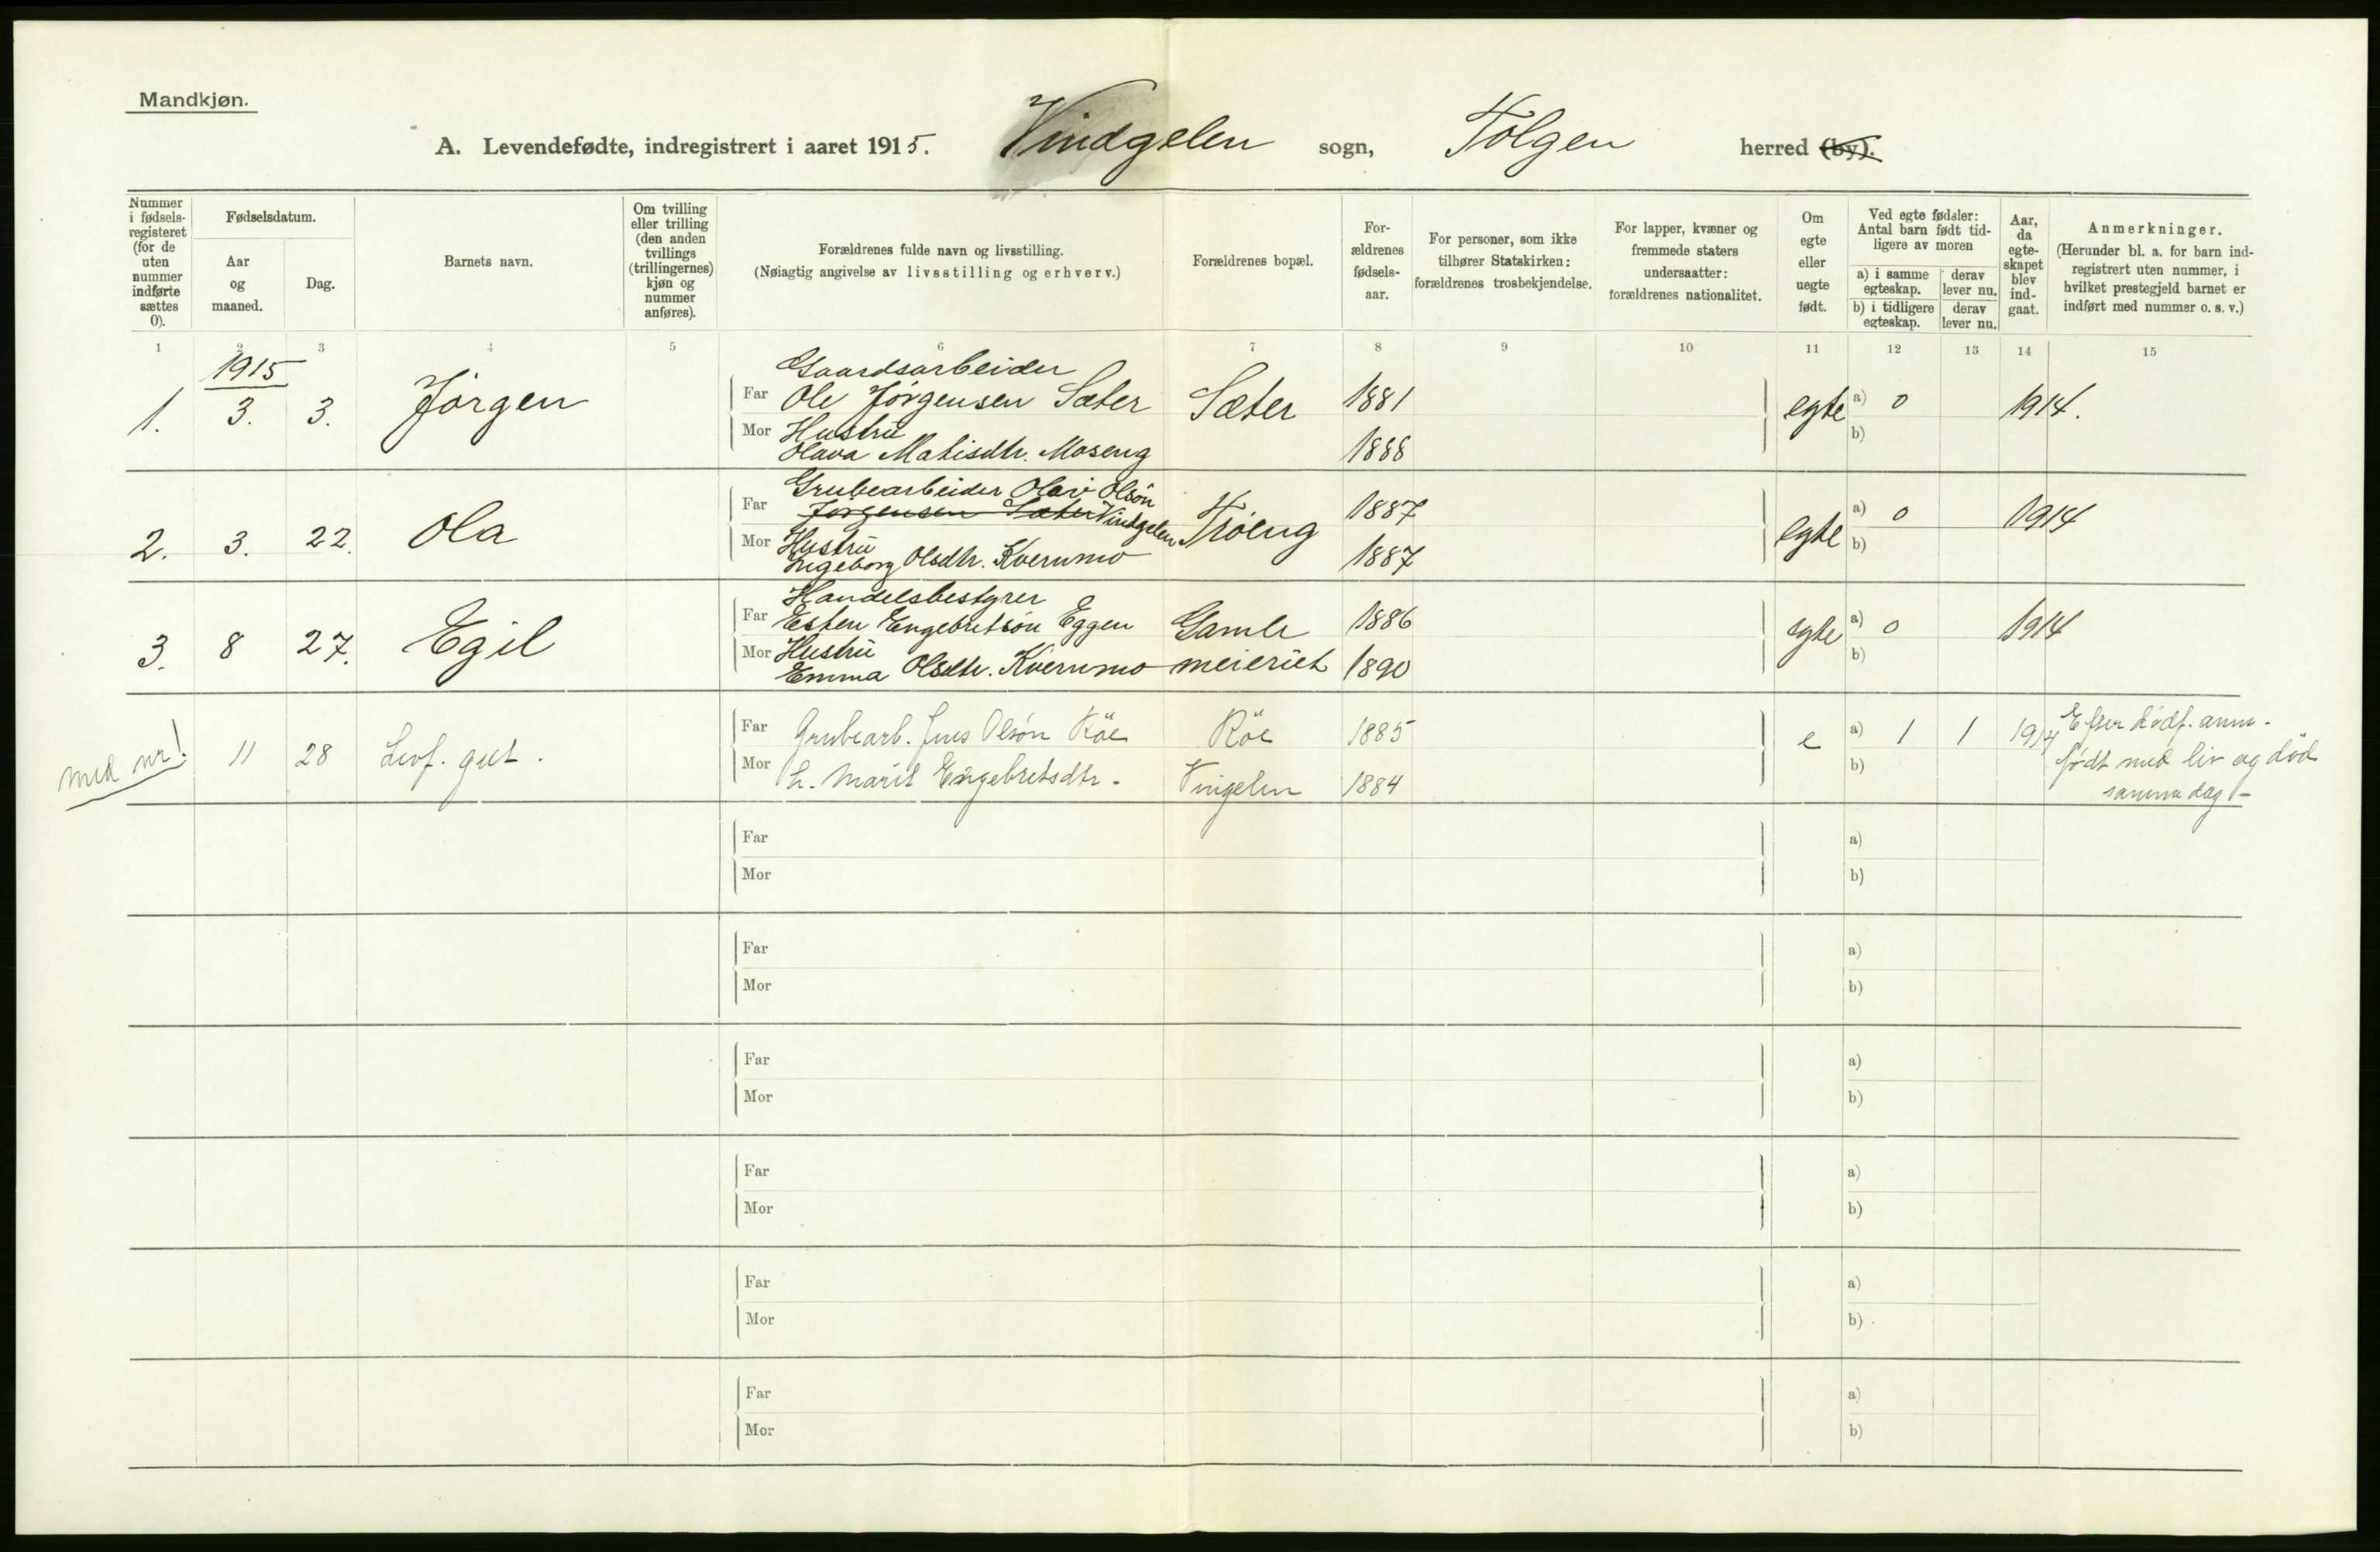 Mandkjøn.
A. Levendefødte, indregistrert i aaret 1915. Vindgelen sogn, Tolgen herred (by).
Nummer i fødsels-registeret (for de uten nummer indførte sættes 0).
Fødselsdatum.
Aar og maaned.
Dag.
Barnets navn.
Om tvilling eller trilling (den anden tvillings (trillingernes) kjøn og nummer anføres).
Forældrenes fulde navn og livsstilling.
(Nøiagtig angivelse av livsstilling og erhverv.)
Forældrenes bopæl.
For-ældrenes fødsels-aar.
For personer, som ikke tilhører Statskirken: forældrenes trosbekjendelse.
For lapper, kvæner og fremmede staters undersaatter: forældrenes nationalitet.
Om egte eller uegte født.
Ved egte fødsler: Antal barn født tid-ligere av moren
a) i samme egteskap. derav lever nu.
b) i tidligere egteskap. derav lever nu.
Aar, da egte-skapet blev ind-gaat.
Anmerkninger.
(Herunder bl. a. for barn ind-registrert uten nummer, i hvilket prestegjeld barnet er indført med nummer o. s. v.)
1 2 3 4 5 6 7 8 9 10 11 12 13 14 15
1915
Gaardsarbeider
1. 3. 3. Jörgen Far Ole Jörgensen Sæter Sæter 1881 egte a) 0 1914.
Mor Hustru b)
Olava Matisdtr. Moseng 1888
Grubearbeider Olav Olsön
2. 3. 22. Ola Far Jörgensen Sæter Vindgelen Tröeng 1887 egte a) 0 1914
Mor Hustru b)
Ingeborg Olsdtr. Kvernmo 1887
Handelsbestyrer
3. 8 27. Egil Far Esten Engebretsön Eggen Gamle 1886 egte a) 0 1914
Mor Hustru b)
Emma Olsdtr. Kvernmo meieriet 1890
med nr! 11 28 Levf. gut. Far Grubearb. Jens Olsön Röe Röe 1885 e a) 1 1 1914 Efter dödf. anm.
Mor h. Marit Engebretsdtr. Vingelen 1884 b) födt med liv og död
samme dag -
Far a)
Mor b)
Far a)
Mor b)
Far a)
Mor b)
Far a)
Mor b)
Far a)
Mor b)
Far a)
Mor b)